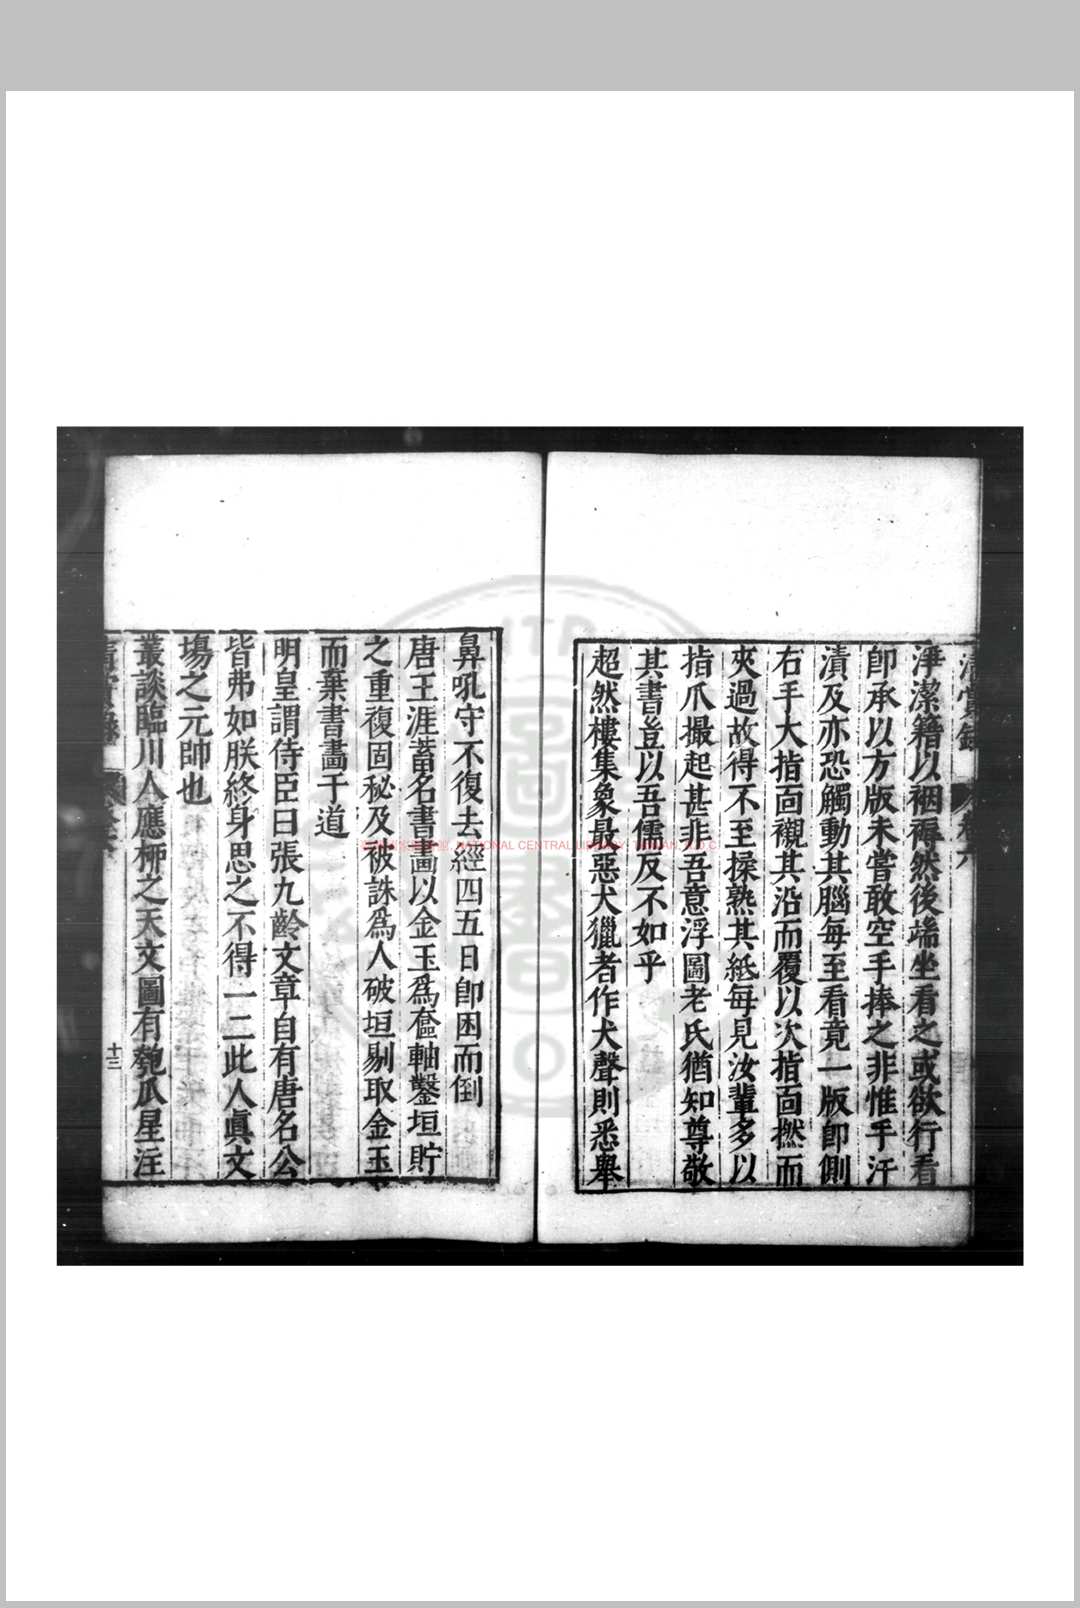 清賞錄 卷六
淨潔籍以裀褥然後端坐看之或欲行看
卽承以方版未嘗敢空手捧之非惟手汗
漬及亦恐觸動其腦每至看竟一版卽側
右手大指面襯其沿而覆以次指面撚而
夾過故得不至揉熟其紙每見汝輩多以
指爪撮起甚非吾意浮圖老氏猶知尊敬
其書豈以吾儒反不如乎
超然樓集象最惡犬獵者作犬聲則悉舉
鼻吼守不復去經四五日卽困而倒
唐王涯蓄名書畫以金玉爲奩軸鑿垣貯
之重複固秘及被誅爲人破垣剔取金玉
而棄書畫于道
明皇謂侍臣曰張九齡文章自有唐名公
皆弗如朕終身思之不得一二此人眞文
場之元帥也
叢談臨川人應柳之天文圖有匏瓜星注
清賞錄 卷六 十三
NATIONAL CENTRAL LIBRARY, TAIWAN, R.O.C